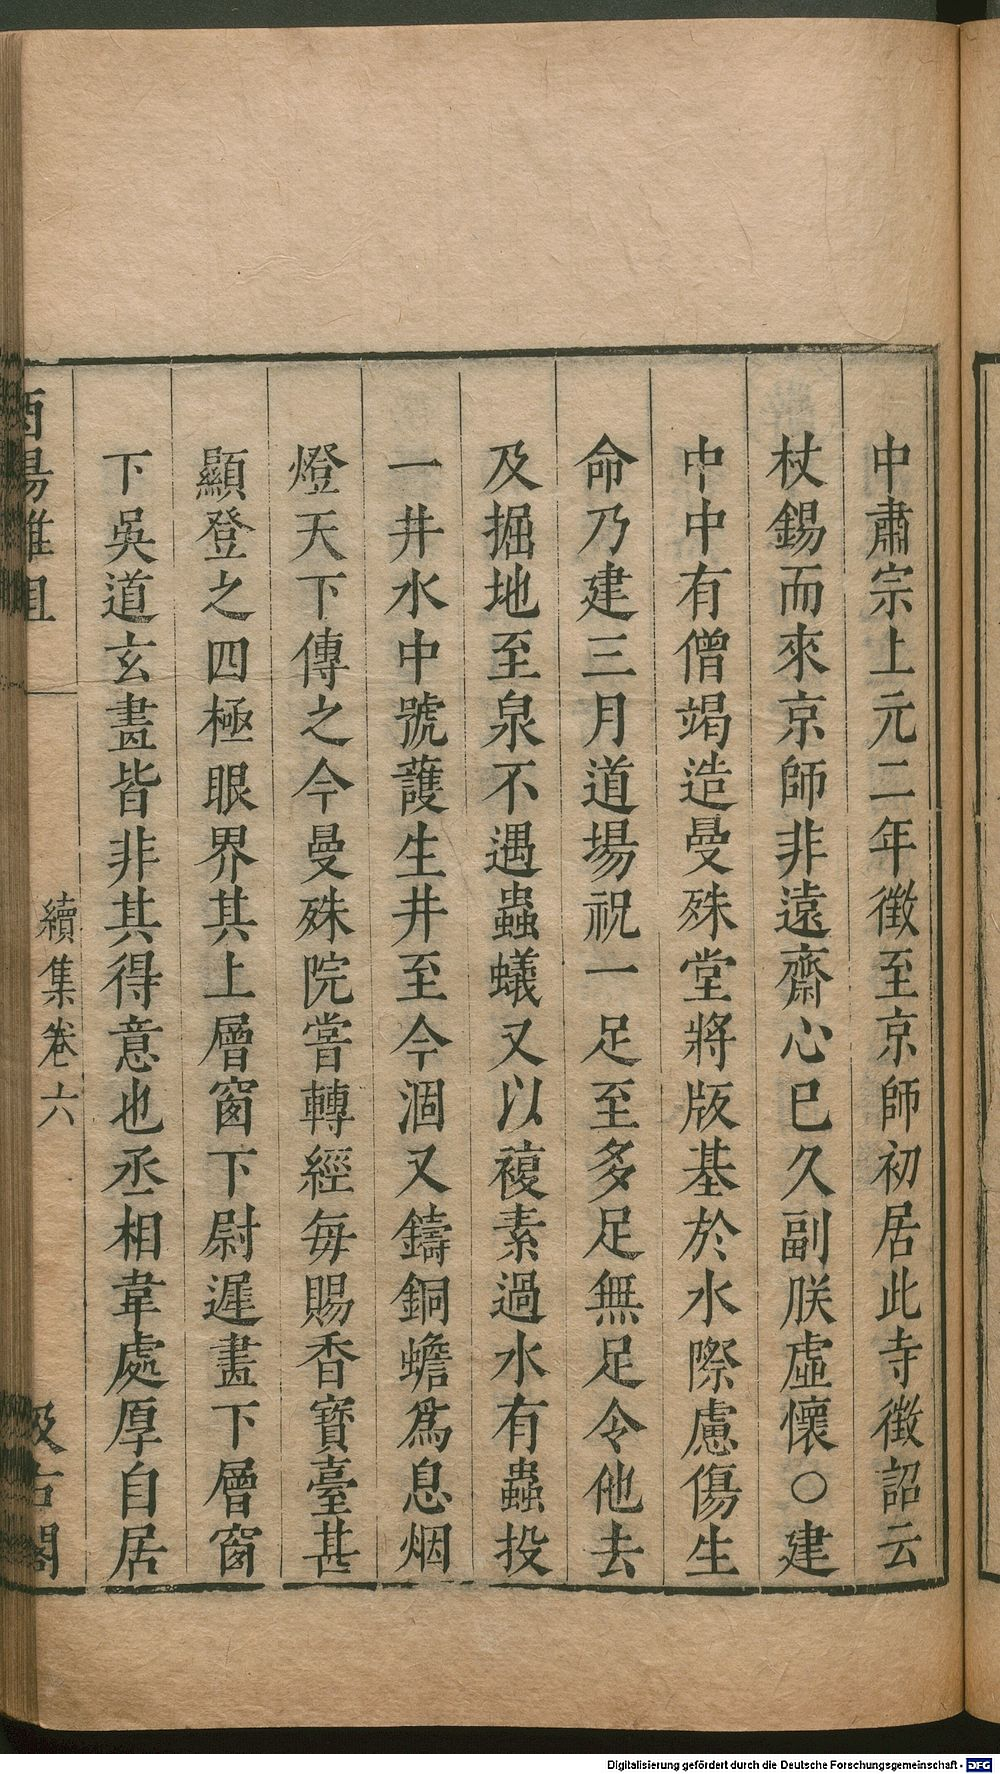 中肅宗上元二年徵至京師初居此寺徵詔云
杖錫而來京師非遠齋心已久副朕虛懷○建
中中有僧竭造曼殊堂將版基於水際慮傷生
命乃建三月道場祝一足至多足無足令他去
及掘地至泉不遇蟲蟻又以複素過水有蟲投
一井水中號護生井至今涸又鑄銅蟾爲息烟
燈天下傳之今曼殊院嘗轉經每賜香寶臺甚
顯登之四極眼界其上層窗下尉遲畫下層窗
下吳道玄畫皆非其得意也丞相韋處厚自居
酉陽雜俎
續集卷六
汲古閣
Digitalisierung gefördert durch die Deutsche Forschungsgemeinschaft - DFG